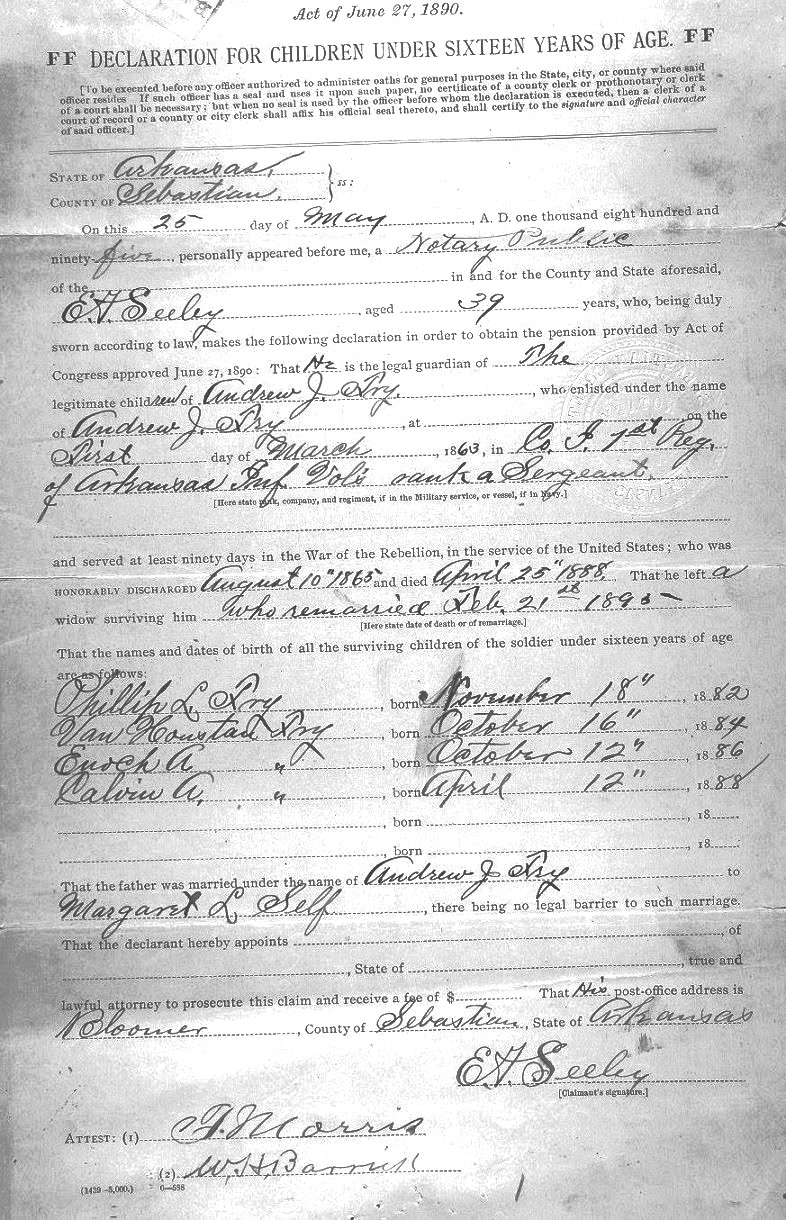 Act of June 27, 1890.
FF DECLARATION FOR CHILDREN UNDER SIXTEEN YEARS OF AGE. FF
[To be executed before any officer authorized to administer oaths for general purposes in the State, city, or county where said
officer resides. If such officer has a seal and uses it upon such paper, no certificate of a county clerk or prothonotary or clerk
of a court shall be necessary; but when no seal is used by the officer before whom the declaration is executed, then a clerk of a
court of record or a county or city clerk shall affix his official seal thereto, and shall certify to the signature and official character
of said officer.]
STATE OF Arkansas,
COUNTY OF Sebastian, } ss:
On this 25 day of May, A. D. one thousand eight hundred and
ninety-five, personally appeared before me, a Notary Public
of the in and for the County and State aforesaid,
E. A. Seeley, aged 39 years, who, being duly
sworn according to law, makes the following declaration in order to obtain the pension provided by Act of
Congress approved June 27, 1890: That He is the legal guardian of The
legitimate children of Andrew J. Fry, who enlisted under the name
of Andrew J. Fry, at on the
First day of March, 1863, in Co. I, 1st Reg,
of Arkansas Inf Vol's rank a Sergeant,
[Here state rank, company, and regiment, if in the Military service, or vessel, if in Navy.]
and served at least ninety days in the War of the Rebellion, in the service of the United States; who was
HONORABLY DISCHARGED August 10" 1865 and died April 25" 1888, That he left a
widow surviving him who remarried Feb. 21st 1895
[Here state date of death or of remarriage.]
That the names and dates of birth of all the surviving children of the soldier under sixteen years of age
are as follows:
Phillip L. Fry, born November 18", 1882
Van Houstan Fry, born October 16", 1884
Enoch A. ", born October 12", 1886
Calvin A. ", born April 12", 1888
, born , 18
, born , 18
That the father was married under the name of Andrew J Fry to
Margaret L Self, there being no legal barrier to such marriage.
That the declarant hereby appoints , of
, State of , true and
lawful attorney to prosecute this claim and receive a fee of $ That His post-office address is
Bloomer, County of Sebastian, State of Arkansas
E. A. Seeley
[Claimant's signature.]
ATTEST: (1) Morris
(2) W. H.
(1439—5,000.) 6—588